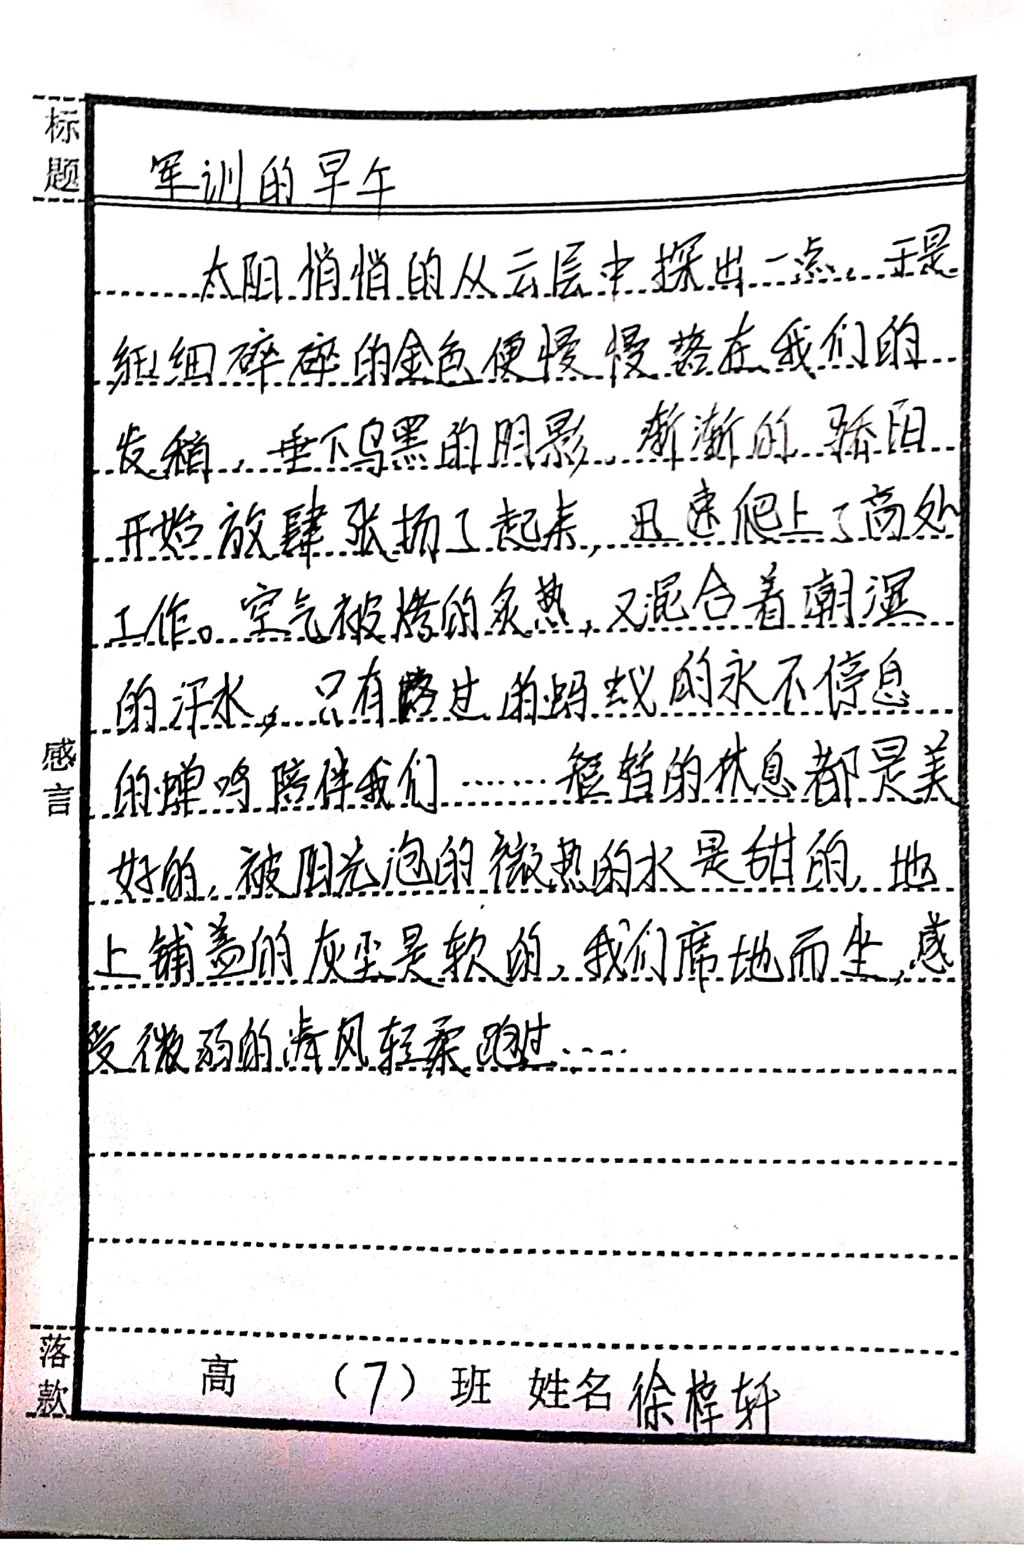 标题
军训的早午
太阳悄悄的从云层中探出一点，于是
细细碎碎的金色便慢慢落在我们的
发稍，垂下乌黑的阴影。渐渐的骄阳
开始放肆张扬了起来，迅速爬上了高处
工作。空气被烤的炙热，又混合着潮湿
的汗水，只有路过的蚂蚁的永不停息
的蝉鸣陪伴我们……短暂的休息都是美
好的，被阳光泡的微热的水是甜的，地
上铺盖的灰尘是软的，我们席地而坐，感
受微弱的清风轻柔跑过……
感言
落款
高 （7）班 姓名 徐梓轩